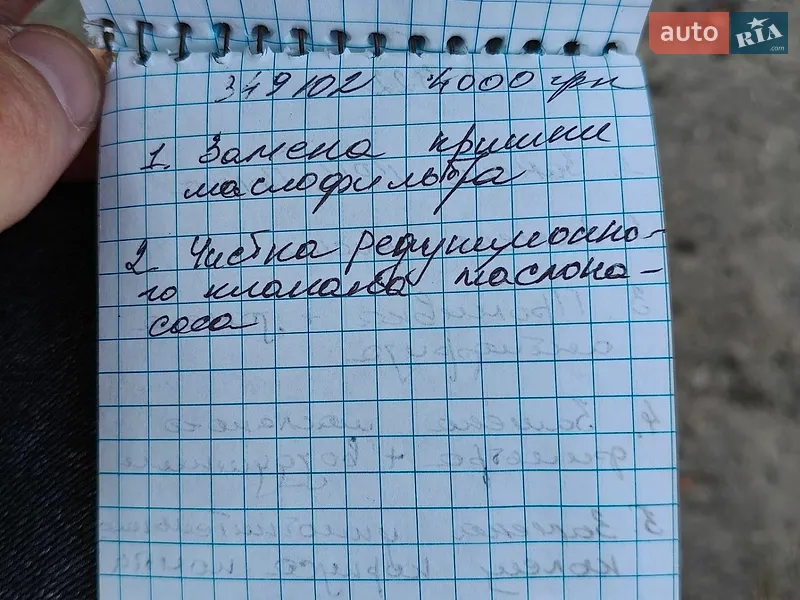 auto RIA .com
319102 4000 грн
1. Замена крышки
маслофильтра
2. Чистка редукционно-
го клапана маслона-
соса